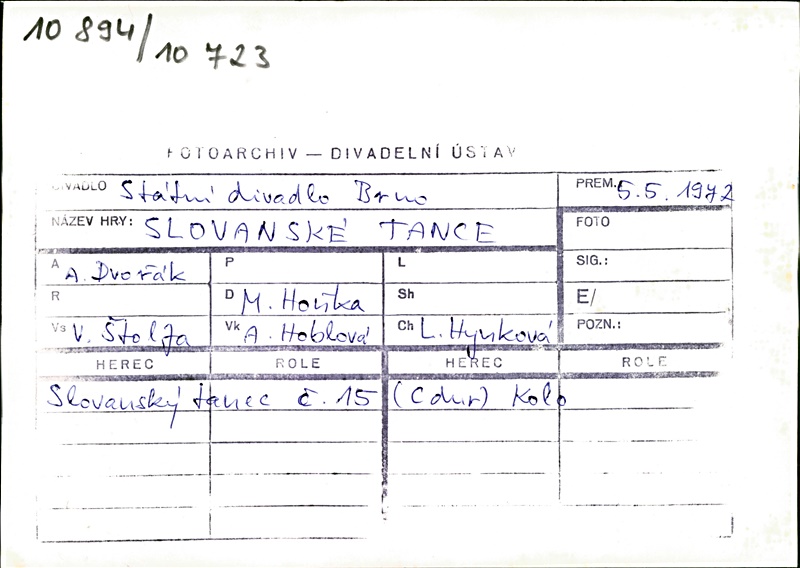 10 894/
10 723
FOTOARCHIV — DIVADELNÍ ÚSTAV
DIVADLO Státní divadlo Brno PREM. 5.5.1972
NÁZEV HRY: SLOVANSKÉ TANCE FOTO
A A. Dvořák P L SIG.:
R D M. Houska Sh E/
Vs V. Štolfa Vk A. Hoblová Ch L. Hynková POZN.:
HEREC ROLE HEREC ROLE
Slovanský tanec č. 15 (C dur) Kolo